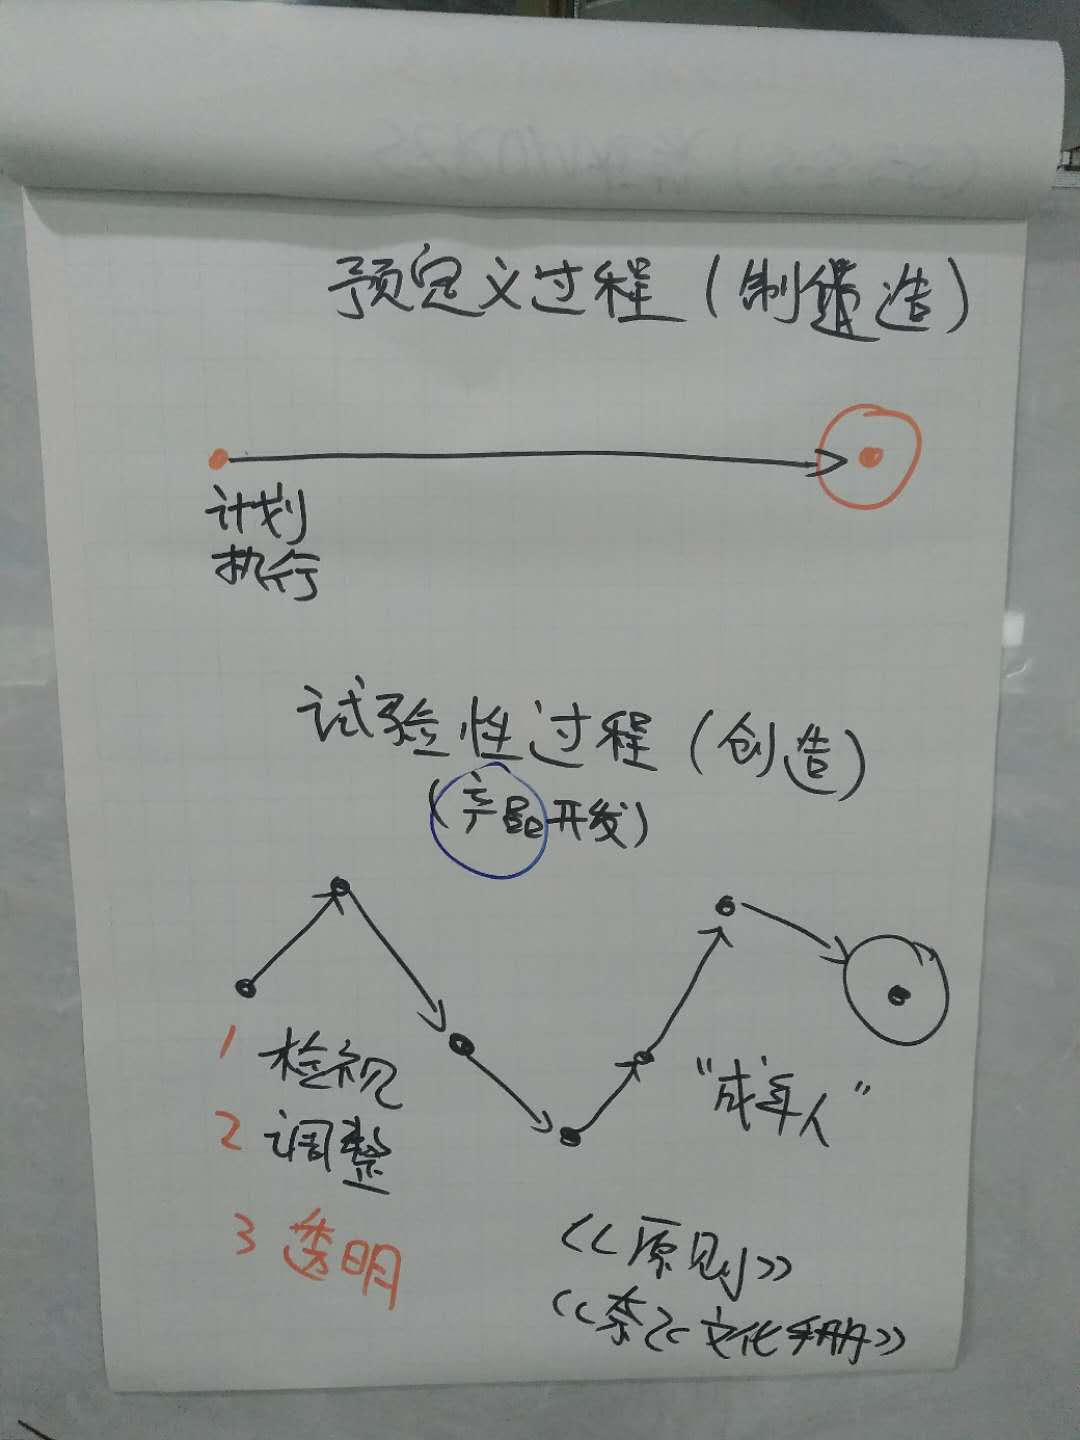 预定义过程(制造)
计划
执行
试验性过程(创造)
(产品开发)
1 检视
2 调整
3 透明
"成年人"
<<原则>>
<<奈飞文化手册>>